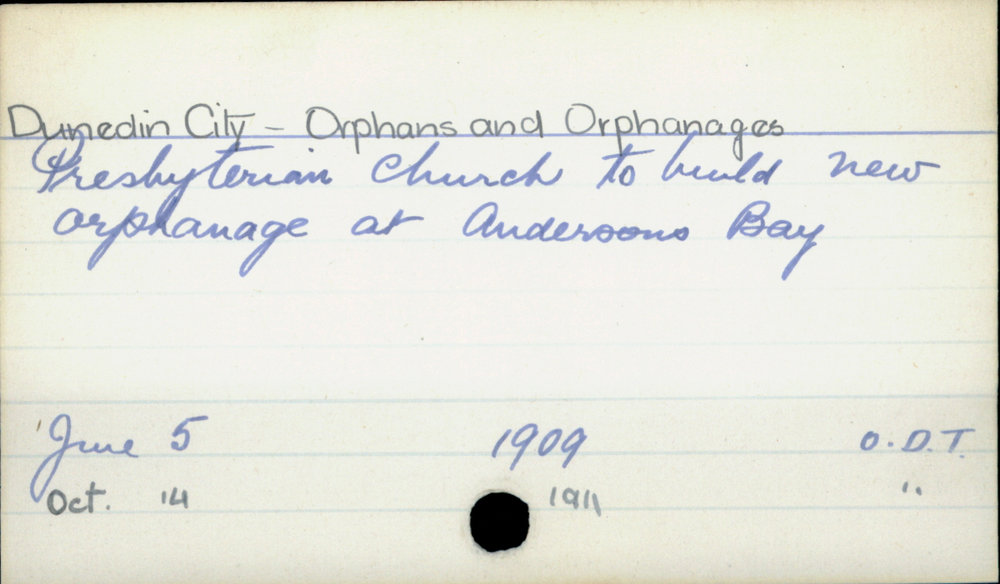 Dunedin City - Orphans and Orphanages
Presbyterian Church to build new
orphanage at Andersons Bay
June 5 1909 O.D.T.
Oct. 14 1911 "